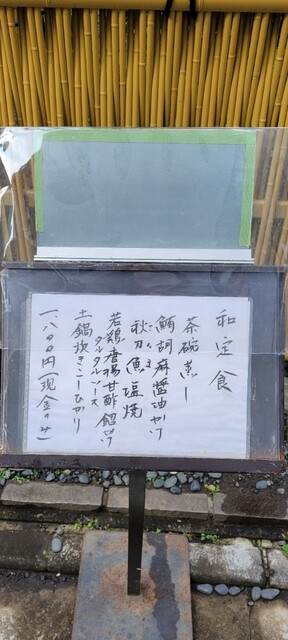 和定食
茶碗蒸し
鮪胡麻醤油かけ
秋刀魚塩焼
さんま
若鶏唐揚甘酢餡かけ
タルタルソース
土鍋炊きこしひかり
一、八〇〇円(現金のみ)